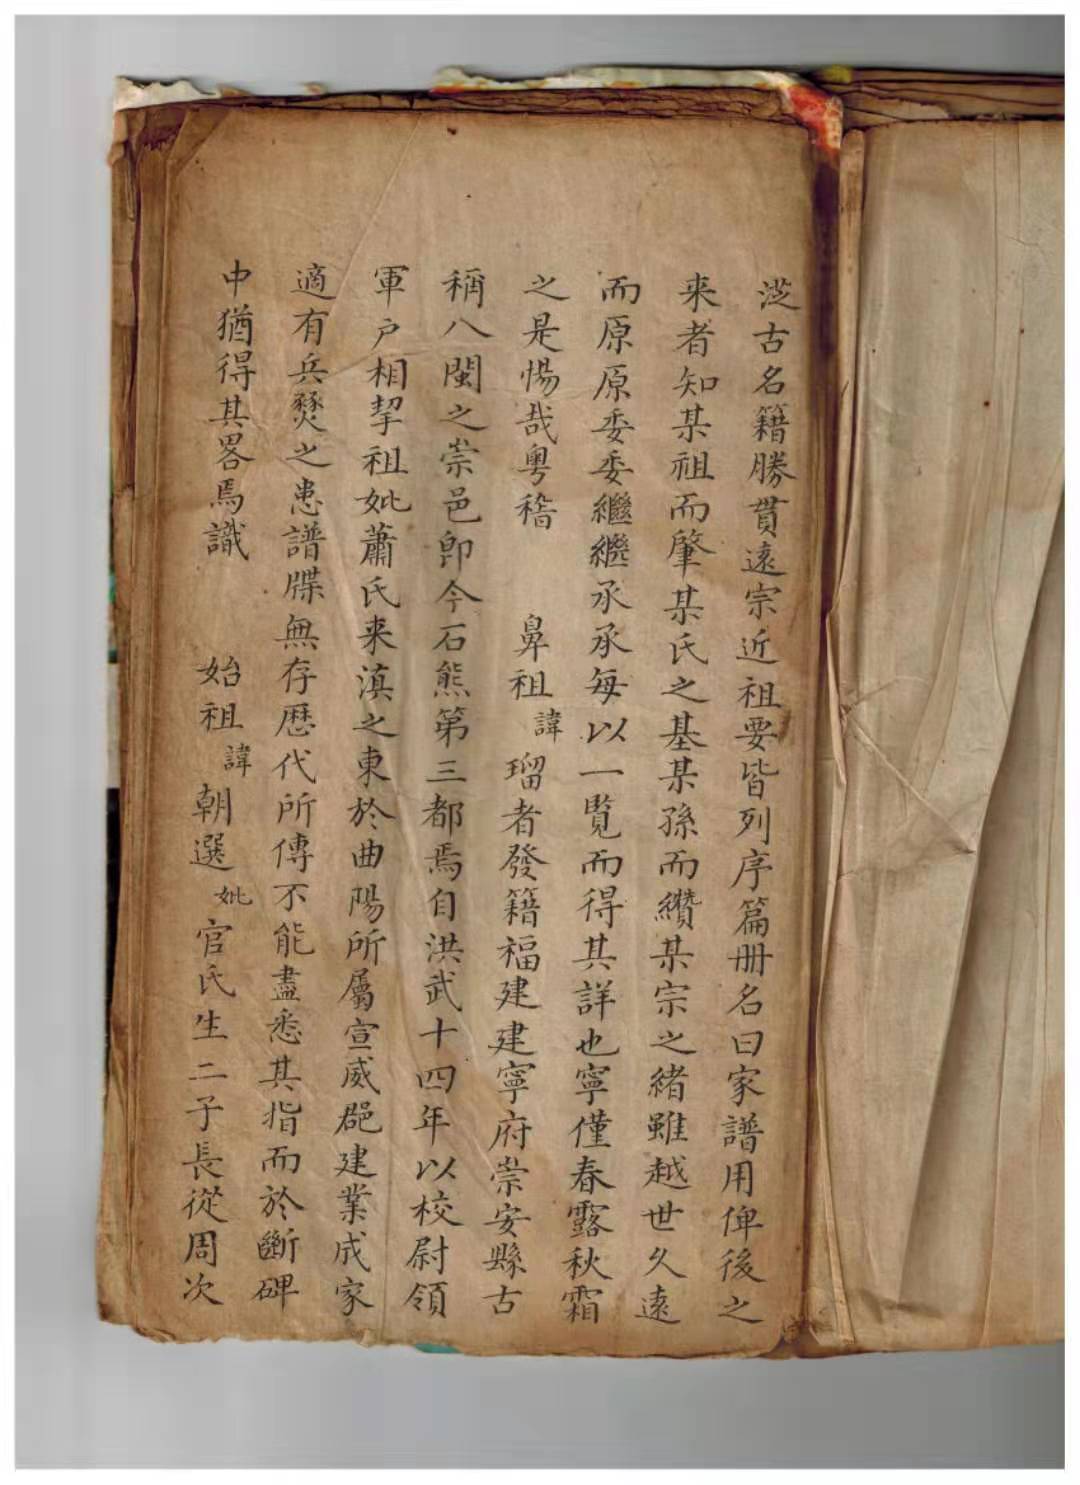 從古名籍勝貫遠宗近祖要皆列序篇冊名曰家譜用俾後之
来者知某祖而肇某氏之基某孫而纘某宗之緒雖越世久遠
而原原委委繼繼承承每以一覧而得其詳也寧僅春露秋霜
之是惕哉粤稽 鼻祖諱瑠者發籍福建建寧府崇安縣古
稱八閩之崇邑卽今石熊第三都焉自洪武十四年以校尉領
軍户相挈祖妣蕭氏来滇之東於曲陽所屬宣威郡建業成家
適有兵燹之患譜牒無存歴代所傳不能盡悉其指而於斷碑
中猶得其畧焉識 始祖諱朝選妣官氏生二子長從周次